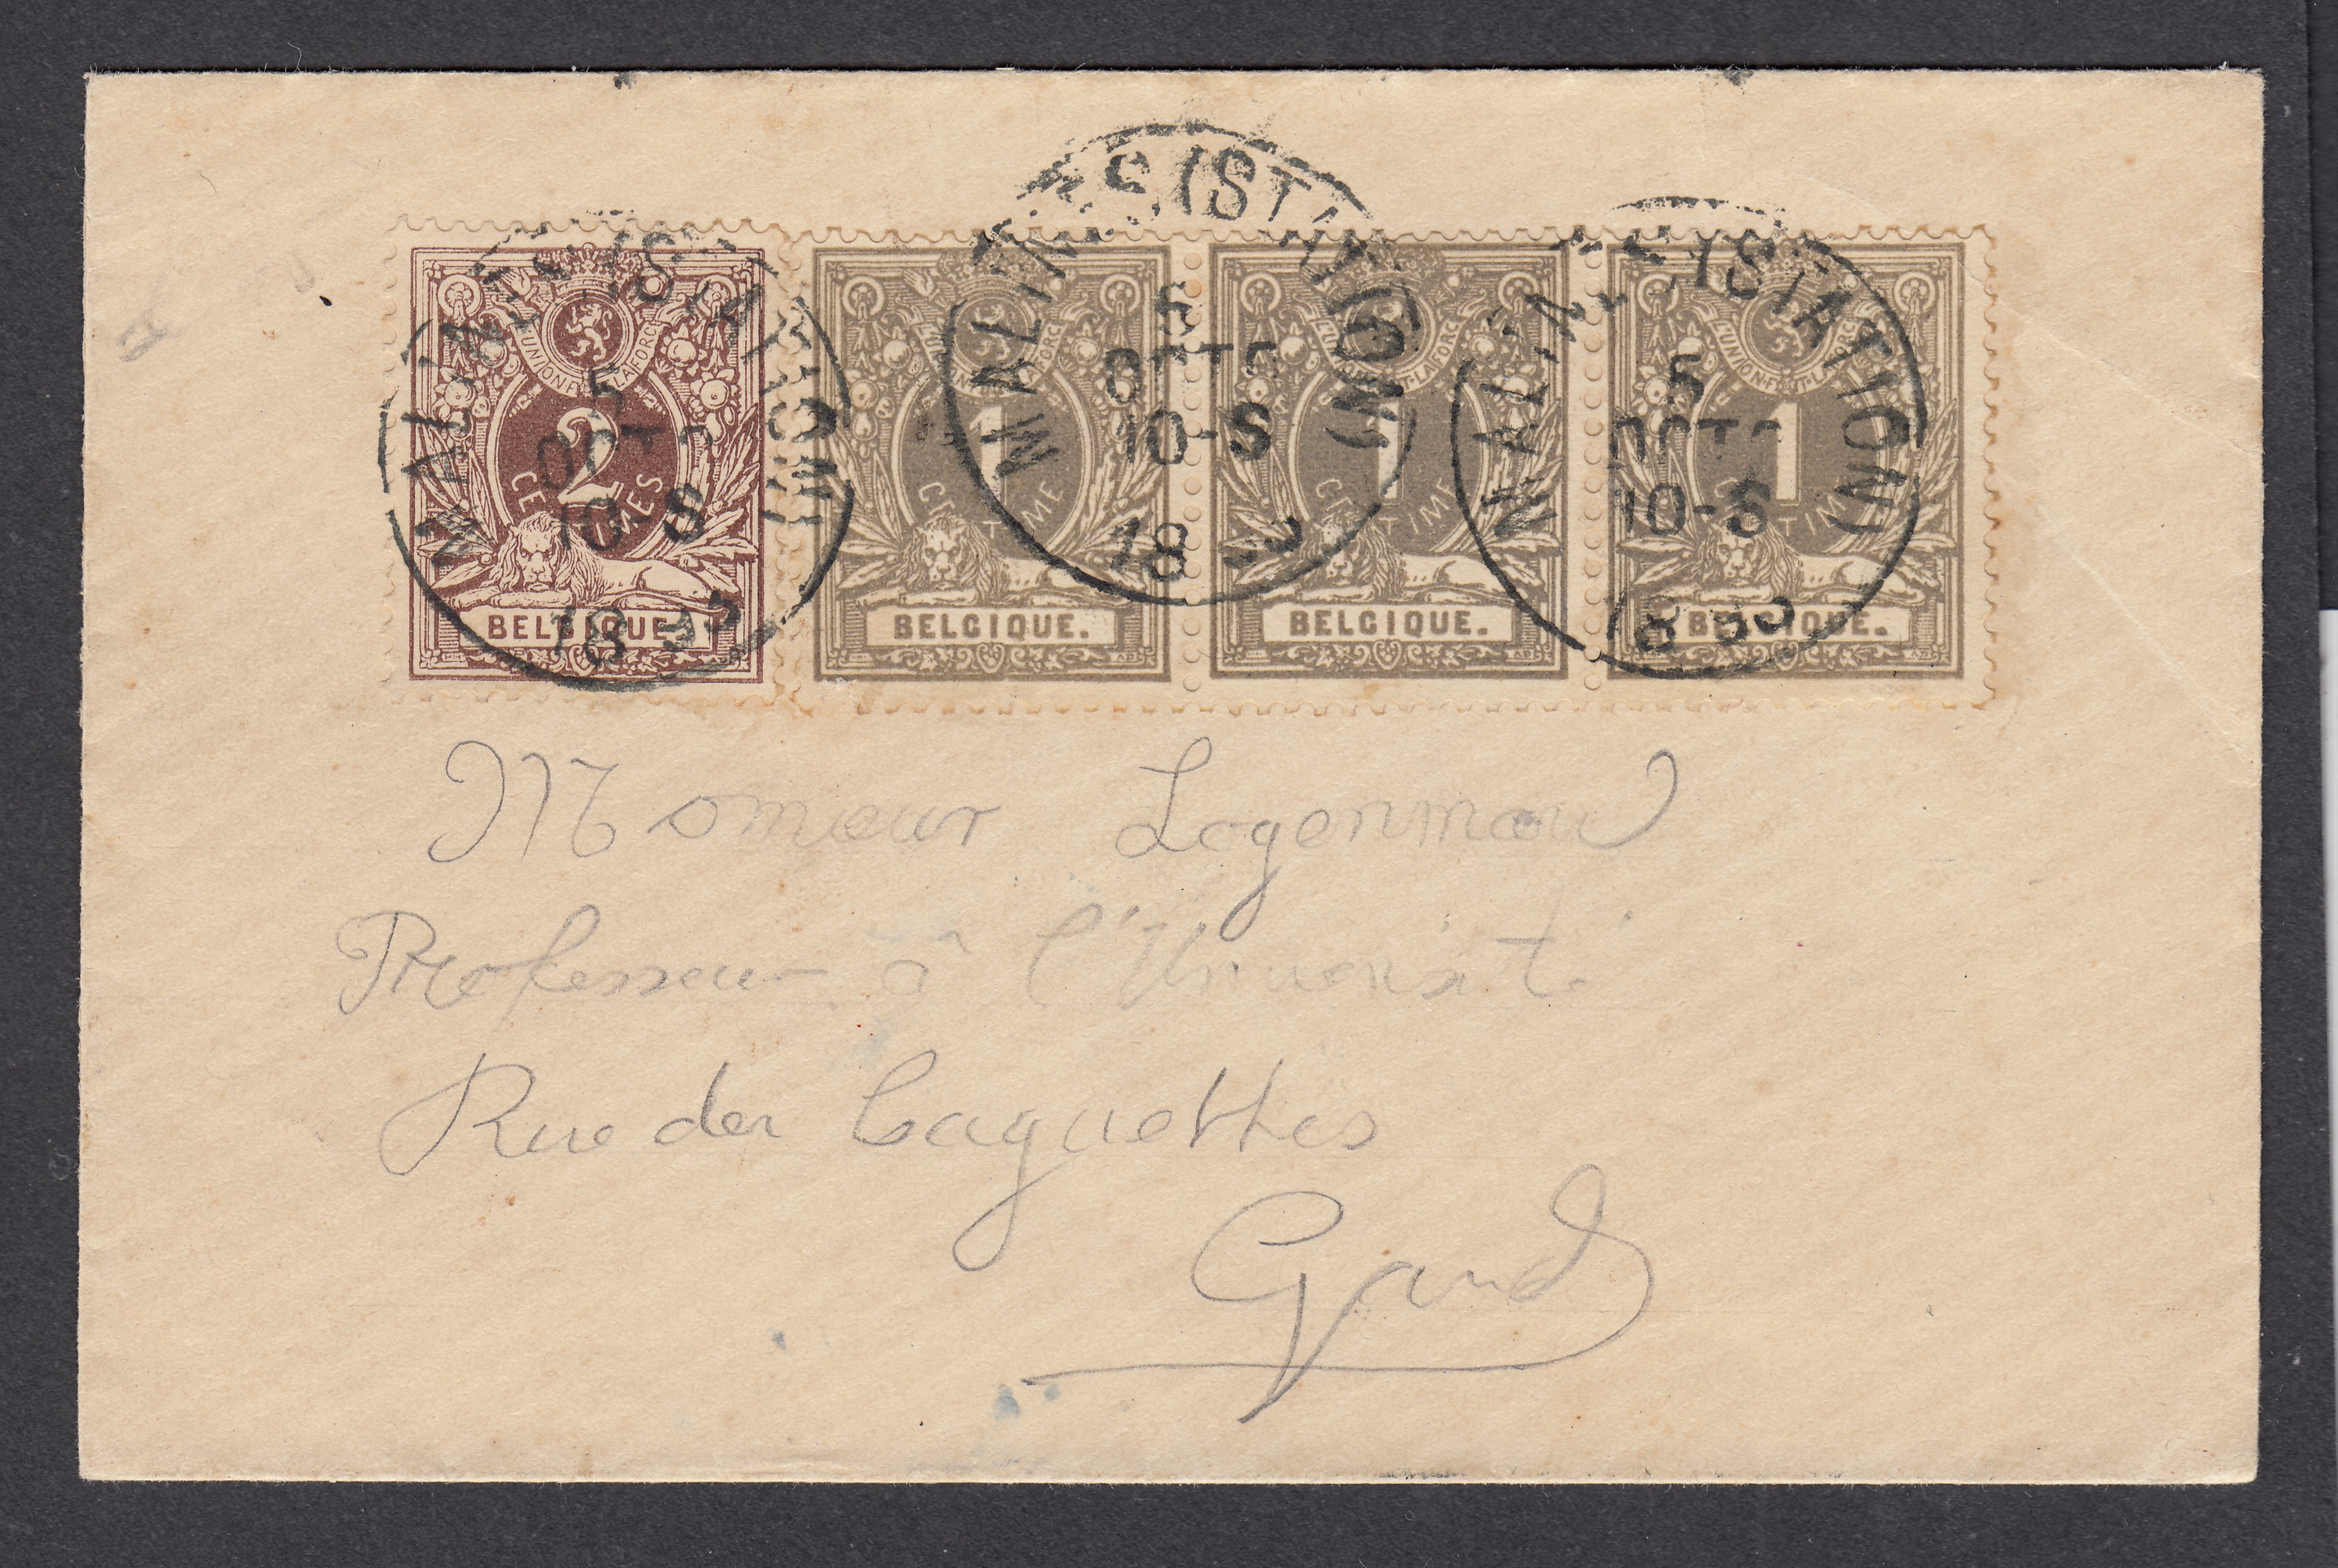 MALINES (STATION)
5
OCT
10-S
18 93
L'UNION FAIT LA FORCE
2
CENTIMES
BELGIQUE.
MALINES (STATION)
5
OCTO
10-S
18 93
L'UNION FAIT LA FORCE
1
CENTIME
BELGIQUE.
L'UNION FAIT LA FORCE
1
CENTIME
BELGIQUE.
MALINES (STATION)
5
OCTO
10-S
18 93
L'UNION FAIT LA FORCE
1
CENTIME
BELGIQUE.
Monsieur
Professeur à l'Université
Rue des Baguettes
Gand